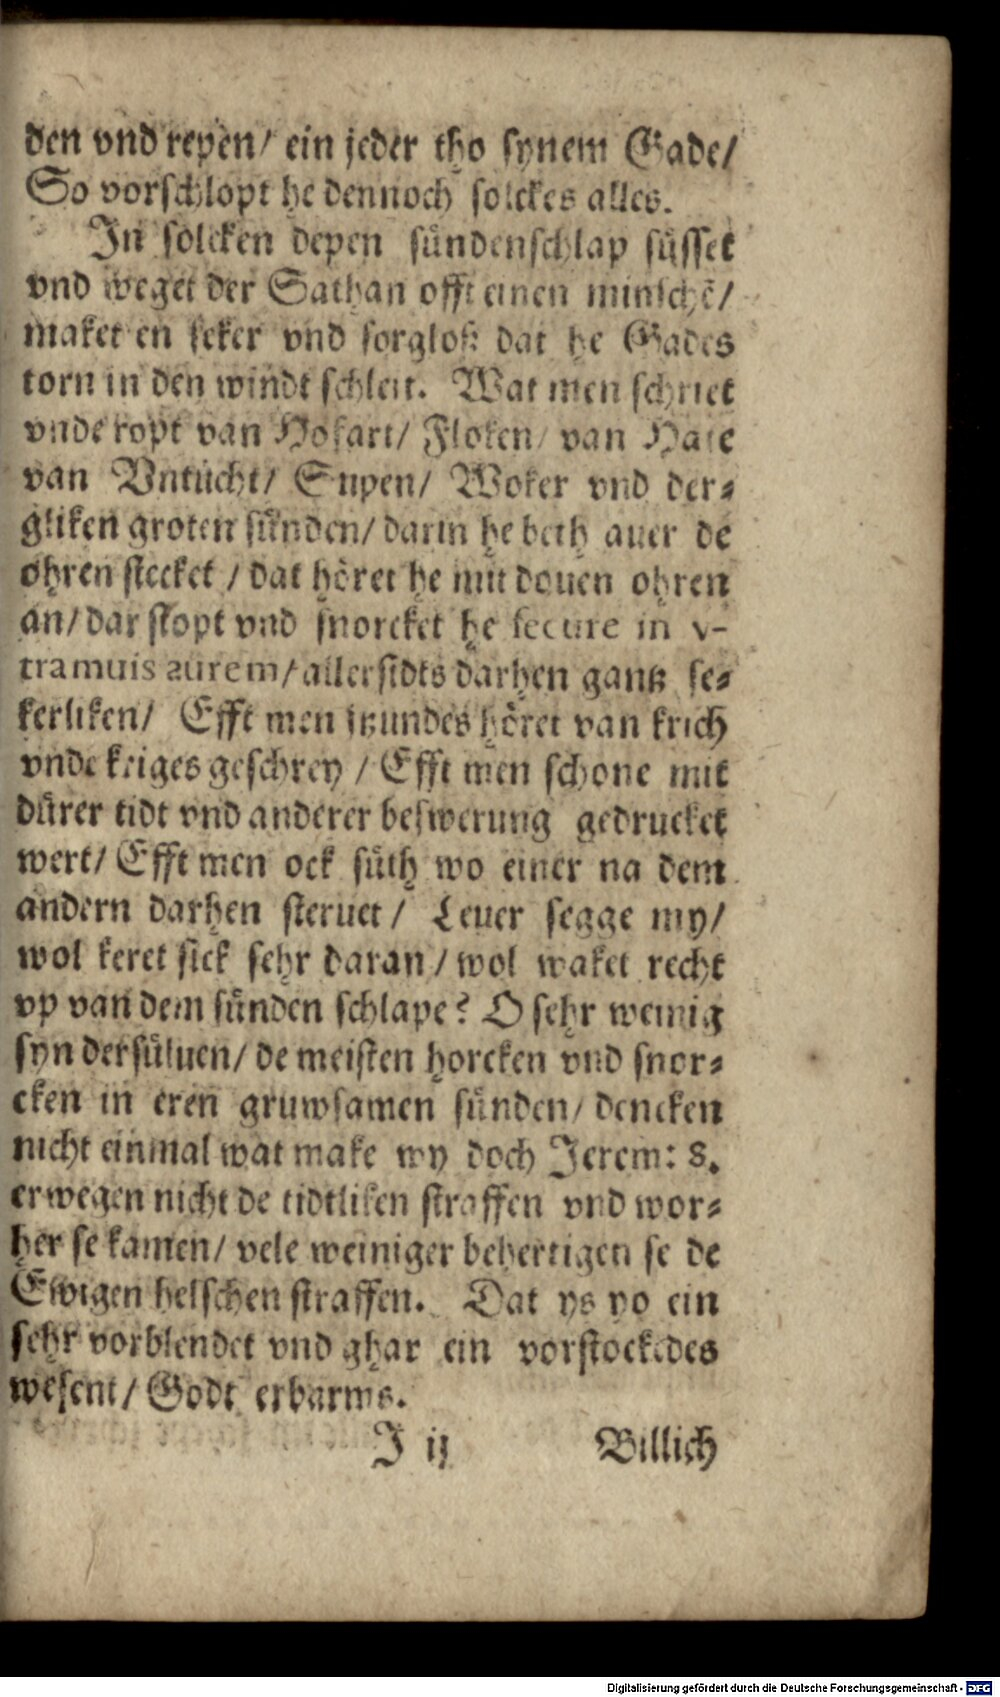 den vnd repen/ ein jeder tho synem Gade/
So vorschlopt he dennoch solckes alles.
In solcken depen sündenschlap süsset
vnd weget der Sathan offt einen minschẽ/
maket en seker vnd sorgloß dat he Gades
torn in den windt schleit. Wat men schriet
vnde ropt van Hofart/ Floken/ van Hate
van Vntücht/ Supen/ Woker vnd der⸗
gliken groten sünden/ darin he beth auer de
ohren stecket / dat höret he mit douen ohren
an/ dar slopt vnd snorcket he secure in v-
tramuis aurem/ allersidts darhen gantz se⸗
kerliken/ Efft men itzundes höret van krich
vnde kriges geschrey / Efft men schone mit
dürer tidt vnd anderer beswerung gedrucket
wert/ Efft men ock süth wo einer na dem
andern darhen steruet/ Leuer segge my/
wol keret sick sehr daran/ wol waket recht
vp van dem sünden schlape? O sehr weinig
syn dersüluen/ de meisten horcken vnd snor⸗
cken in eren gruwsamen sünden/ dencken
nicht einmal wat make wy doch Jerem: 8.
erwegen nicht de tidtliken straffen vnd wor⸗
her se kamen/ vele weiniger behertigen se de
Ewigen helschen straffen. Dat ys yo ein
sehr vorblendet vnd ghar ein vorstockedes
wesent/ Godt erbarms.
I ij Billich
Digitalisierung gefördert durch die Deutsche Forschungsgemeinschaft - DFG